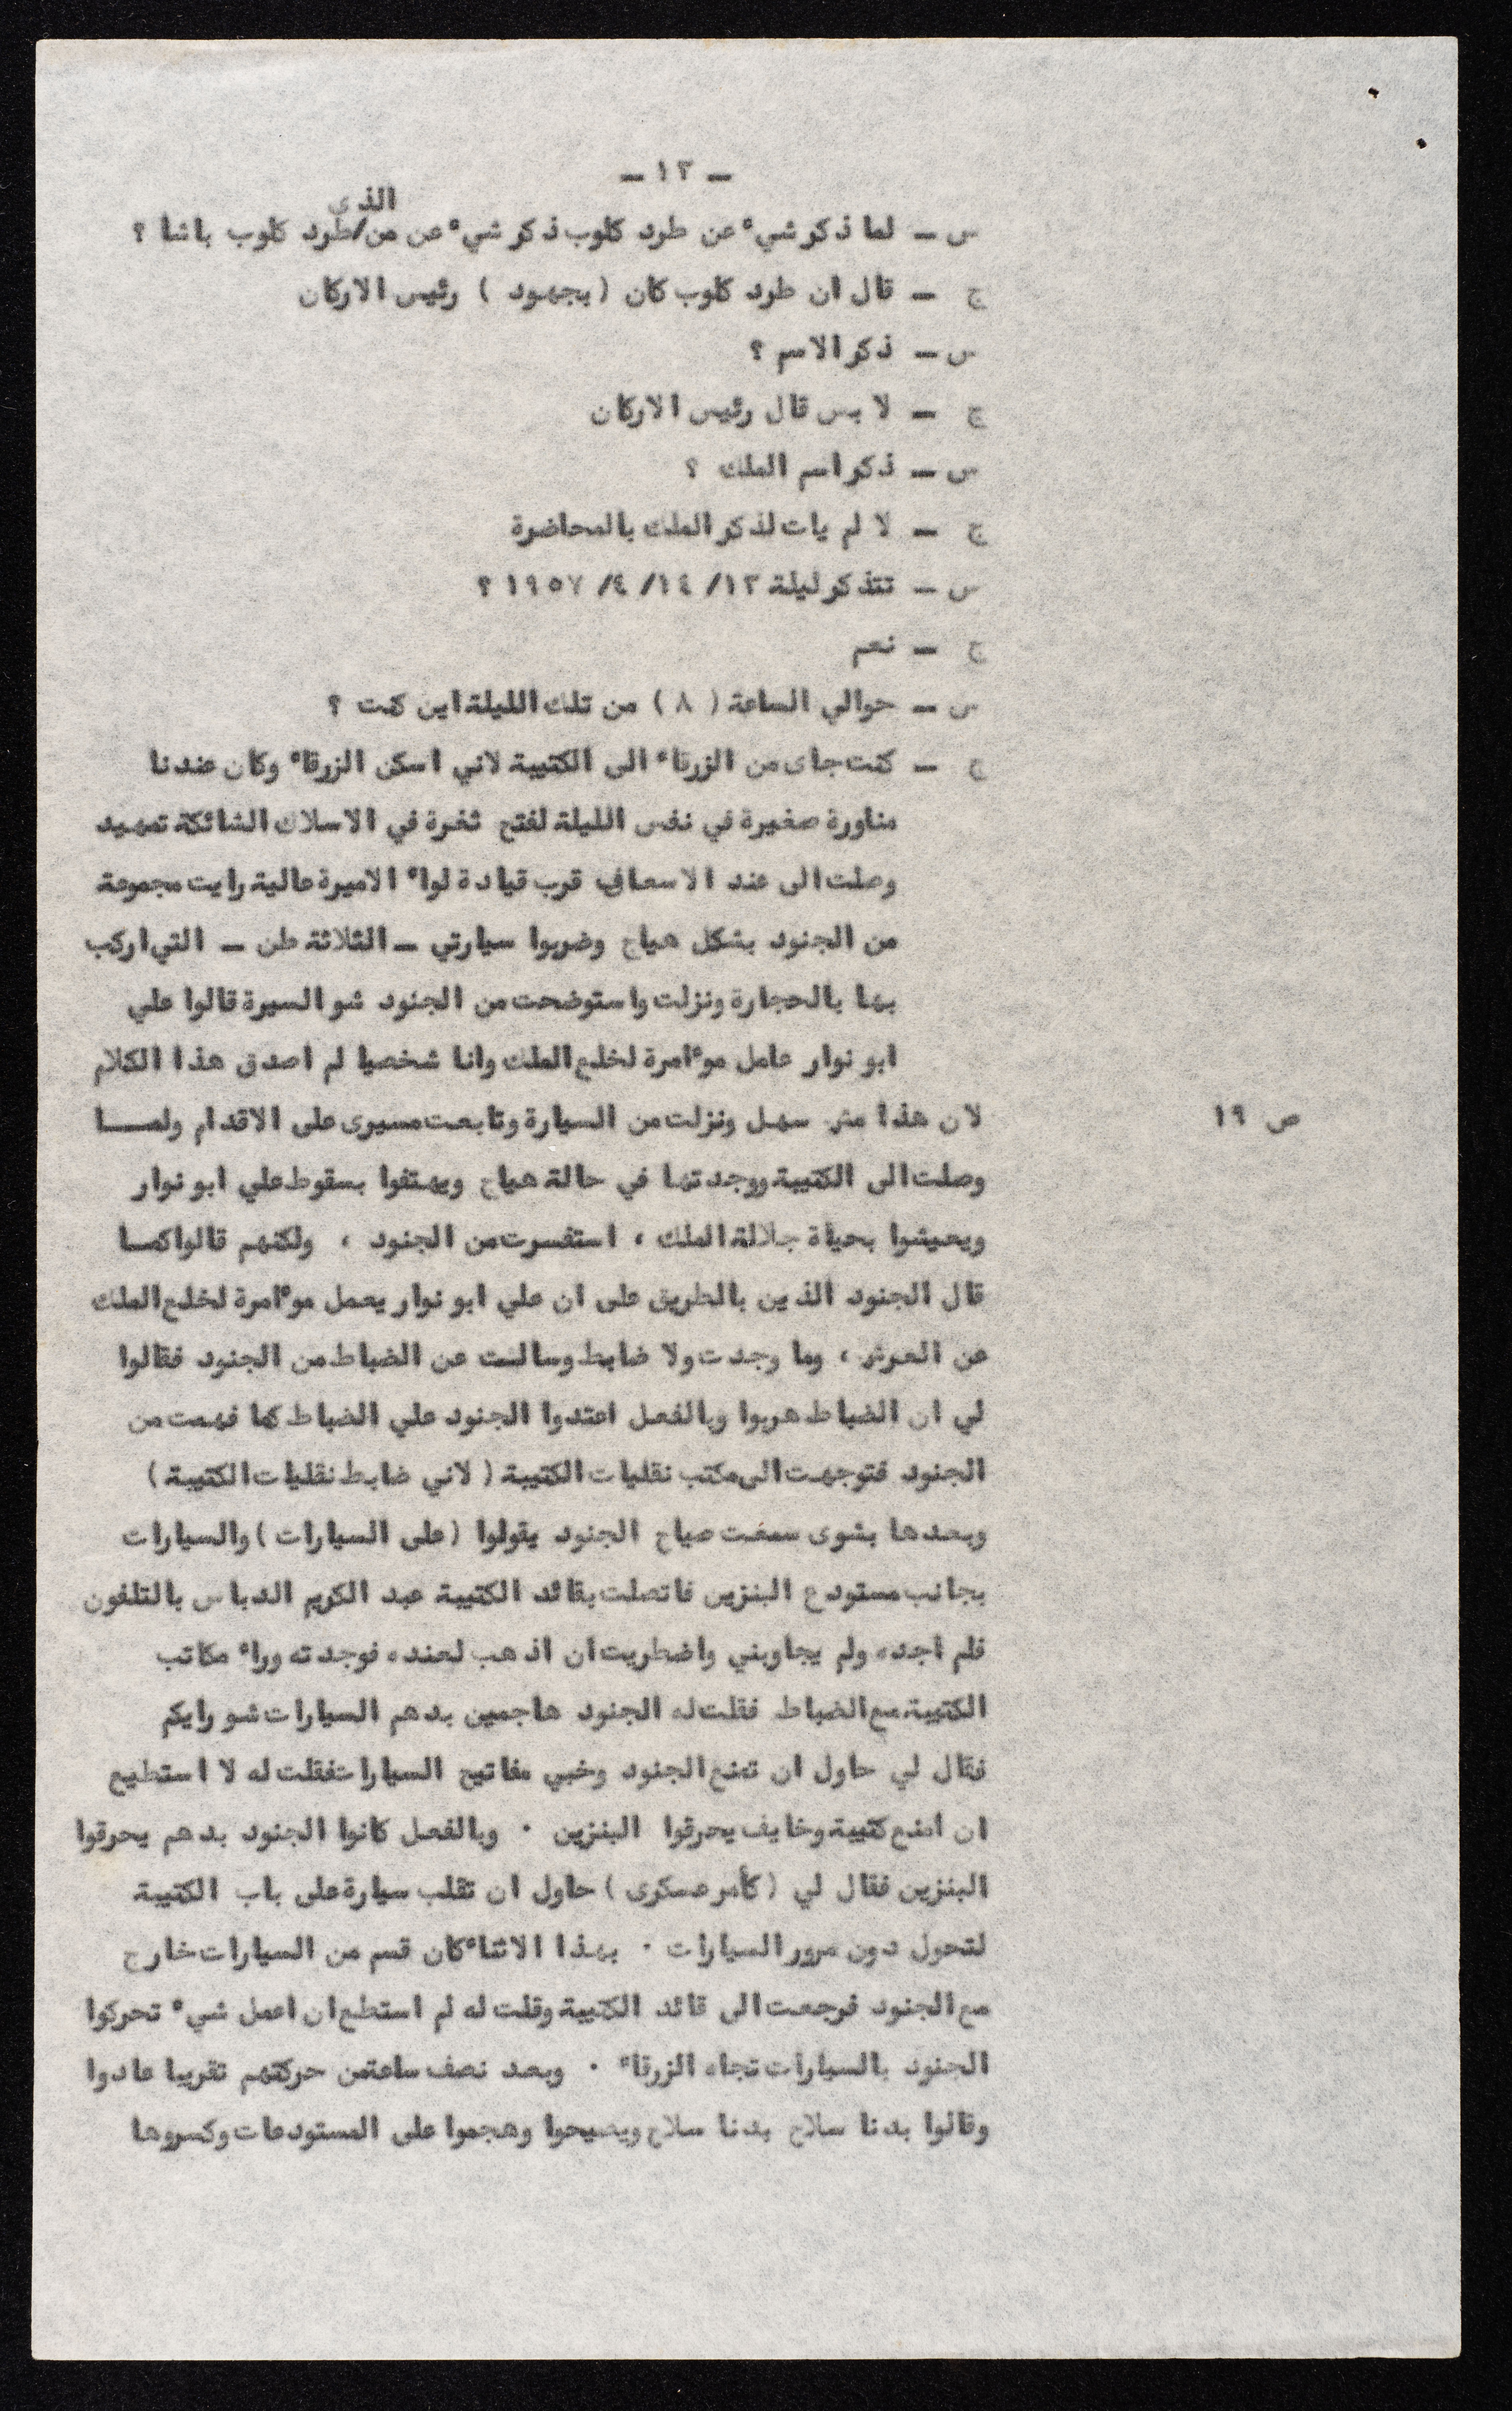 ـ ١٣ ـ
س ـ لما ذكر شي° عن طرد كلوب ذكر شي° عن من/طرد كلوب باشا ؟
الذى
ج ـ قال ان طرد كلوب كان (بجهود ) رئيس الاركان
س ـ ذكر الاسم ؟
ج ـ لا بس قال رئيس الاركان
س ـ ذكر اسم الملك ؟
ج ـ لا لم يات لذكر الملك بالمحاضرة
س ـ تتذكر ليلة ١٣/ ١٤/ ٤/ ١٩٥٧ ؟
ج ـ نعم
س ـ حوالي الساعة ( ٨ ) من تلك الليلة اين كنت ؟
ج ـ كنت جاى من الزرقا° الى الكتيبة لاني اسكن الزرقا° وكان عندنا
مناورة صغيرة في نفس الليلة لفتح ثغرة في الاسلاك الشائكة تمهيد
وصلت الى عند الاسعاف قرب قيادة لوا° الاميرة عالية رايت مجموعة
من الجنود بشكل هياج وضربوا سيارتي ـ الثلاثة طن ـ التي اركب
بها بالحجارة ونزلت واستوضحت من الجنود شو السيرة قالوا علي
ابو نوار عامل مو°امرة لخلع الملك وانا شخصيا لم اصدق هذا الكلام
ص ١٩ لان هذا مش سهل ونزلت من السيارة وتابعت مسيرى على الاقدام ولمــا
وصلت الى الكتيبة ووجدتها في حالة هياج ويهتفوا بسقوط علي ابو نوار
ويعيشوا بحياة جلالة الملك ، استفسرت من الجنود ، ولكنهم قالوا كمـا
قال الجنود الذين بالطريق على ان علي ابو نوار يعمل مو°امرة لخلع الملك
عن العرش ، وما وجدت ولا ضابط وسالت عن الضباط من الجنود فقالوا
لي ان الضباط هربوا وبالفعل اعتدوا الجنود علي الضباط كما فهمت من
الجنود فتوجهت الى مكتب نقليات الكتيبة ( لاني ضابط نقليات الكتيبة )
وبعدها بشوى سمعت صياح الجنود يقولوا (على السيارات ) والسيارات
بجانب مستودع البنزين فاتصلت بقائد الكتيبة عبد الكريم الدباس بالتلفون
فلم اجده ولم يجاوبني واضطريت ان اذهب لعنده فوجدته ورا° مكاتب
الكتيبة مع الضباط فقلت له الجنود هاجمين بدهم السيارات شو رايكم
فقال لي حاول ان تمنع الجنود وخبي مفاتيح السيارات فقلت له لا استطيع
ان امنع كتيبة وخايف يحرقوا البنزين . وبالفعل كانوا الجنود بدهم يحرقوا
البنزين فقال لي (كأمر عسكرى ) حاول ان تقلب سيارة على باب الكتيبة
لتحول دون مرور السيارات . بهذا الاثنا° كان قسم من السيارات خارج
مع الجنود فرجعت الى قائد الكتيبة وقلت له لم استطع ان اعمل شي° تحركوا
الجنود بالسيارات تجاه الزرقا° . وبعد نصف ساعة من حركتهم تقريبا عادوا
وقالوا بدنا سلاح بدنا سلاح ويصيحوا وهجموا على المستودعات وكسروها